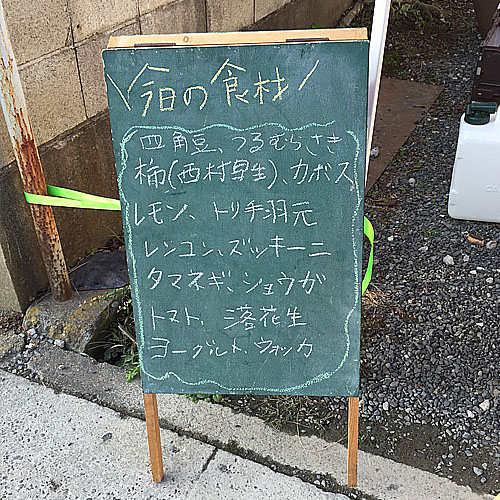 \今日の食材/
四角豆、つるむらさき
柿(西村早生)、カボス
レモン、トリ手羽元
レンコン、ズッキーニ
タマネギ、ショウガ
トマト、落花生
ヨーグルト、ウォッカ